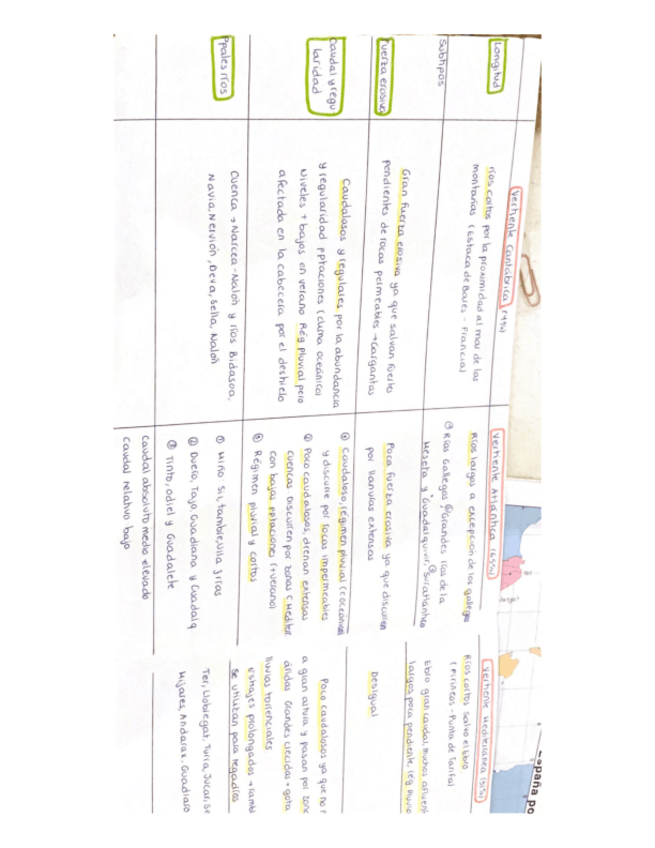 Vertiente Cantábrica (9%)
Vertiente Atlántica (65%)
Vertiente Mediterránea (31%)
España po
Longitud
ríos cortos por la proximidad al mar de las
montañas (Estaca de Bares - Francia)
Ríos largos a excepción de los gallegos
Ríos cortos salvo el Ebro
(Pirineos - Punta de Tarifa)
Subtipos
① Ríos Gallegos ② Grandes ríos de la
Meseta y Guadalquivir, ③ Suratlántico
Ebro gran caudal, muchos afluent
largos poca pendiente, rég pluvio
Fuerza erosiva
Gran fuerza erosiva ya que salvan fuertes
pendientes de rocas permeables → Gargantas
Poca fuerza erosiva ya que discurren
por llanuras extensas
Desigual
Caudal y regu
laridad
Caudalosos y regulares por la abundancia
y regularidad pptaciones (clima oceánico)
Niveles + bajos en verano Rég pluvial pero
afectada en la cabecera por el deshielo
① Caudaloso, régimen pluvial (c oceánico)
y discurre por rocas impermeables
② Poco caudalosos, drenan extensas
cuencas Discurren por zonas c Mediter.
con bajas pptaciones (+ verano)
③ Régimen pluvial y cortos
Poco caudalosos ya que no
a gran altura y pasan por zona
áridas Grandes crecidas → gota
lluvias torrenciales
Estiajes prolongados → cambi
Se utilizan para regadíos
Ppales ríos
Cuenca → Narcea - Nalón y ríos Bidasoa,
Navia, Nervión, Deva, Sella, Nalón
① Miño Sil, Tambre, Ulla y rías
② Duero, Tajo, Guadiana y Guadalq
③ Tinto, Odiel y Guadalete
Ter, Llobregat, Turia, Jucar, Se
Mijares, Andarax, Guadiaro
caudal absoluto medio elevado
caudal relativo bajo